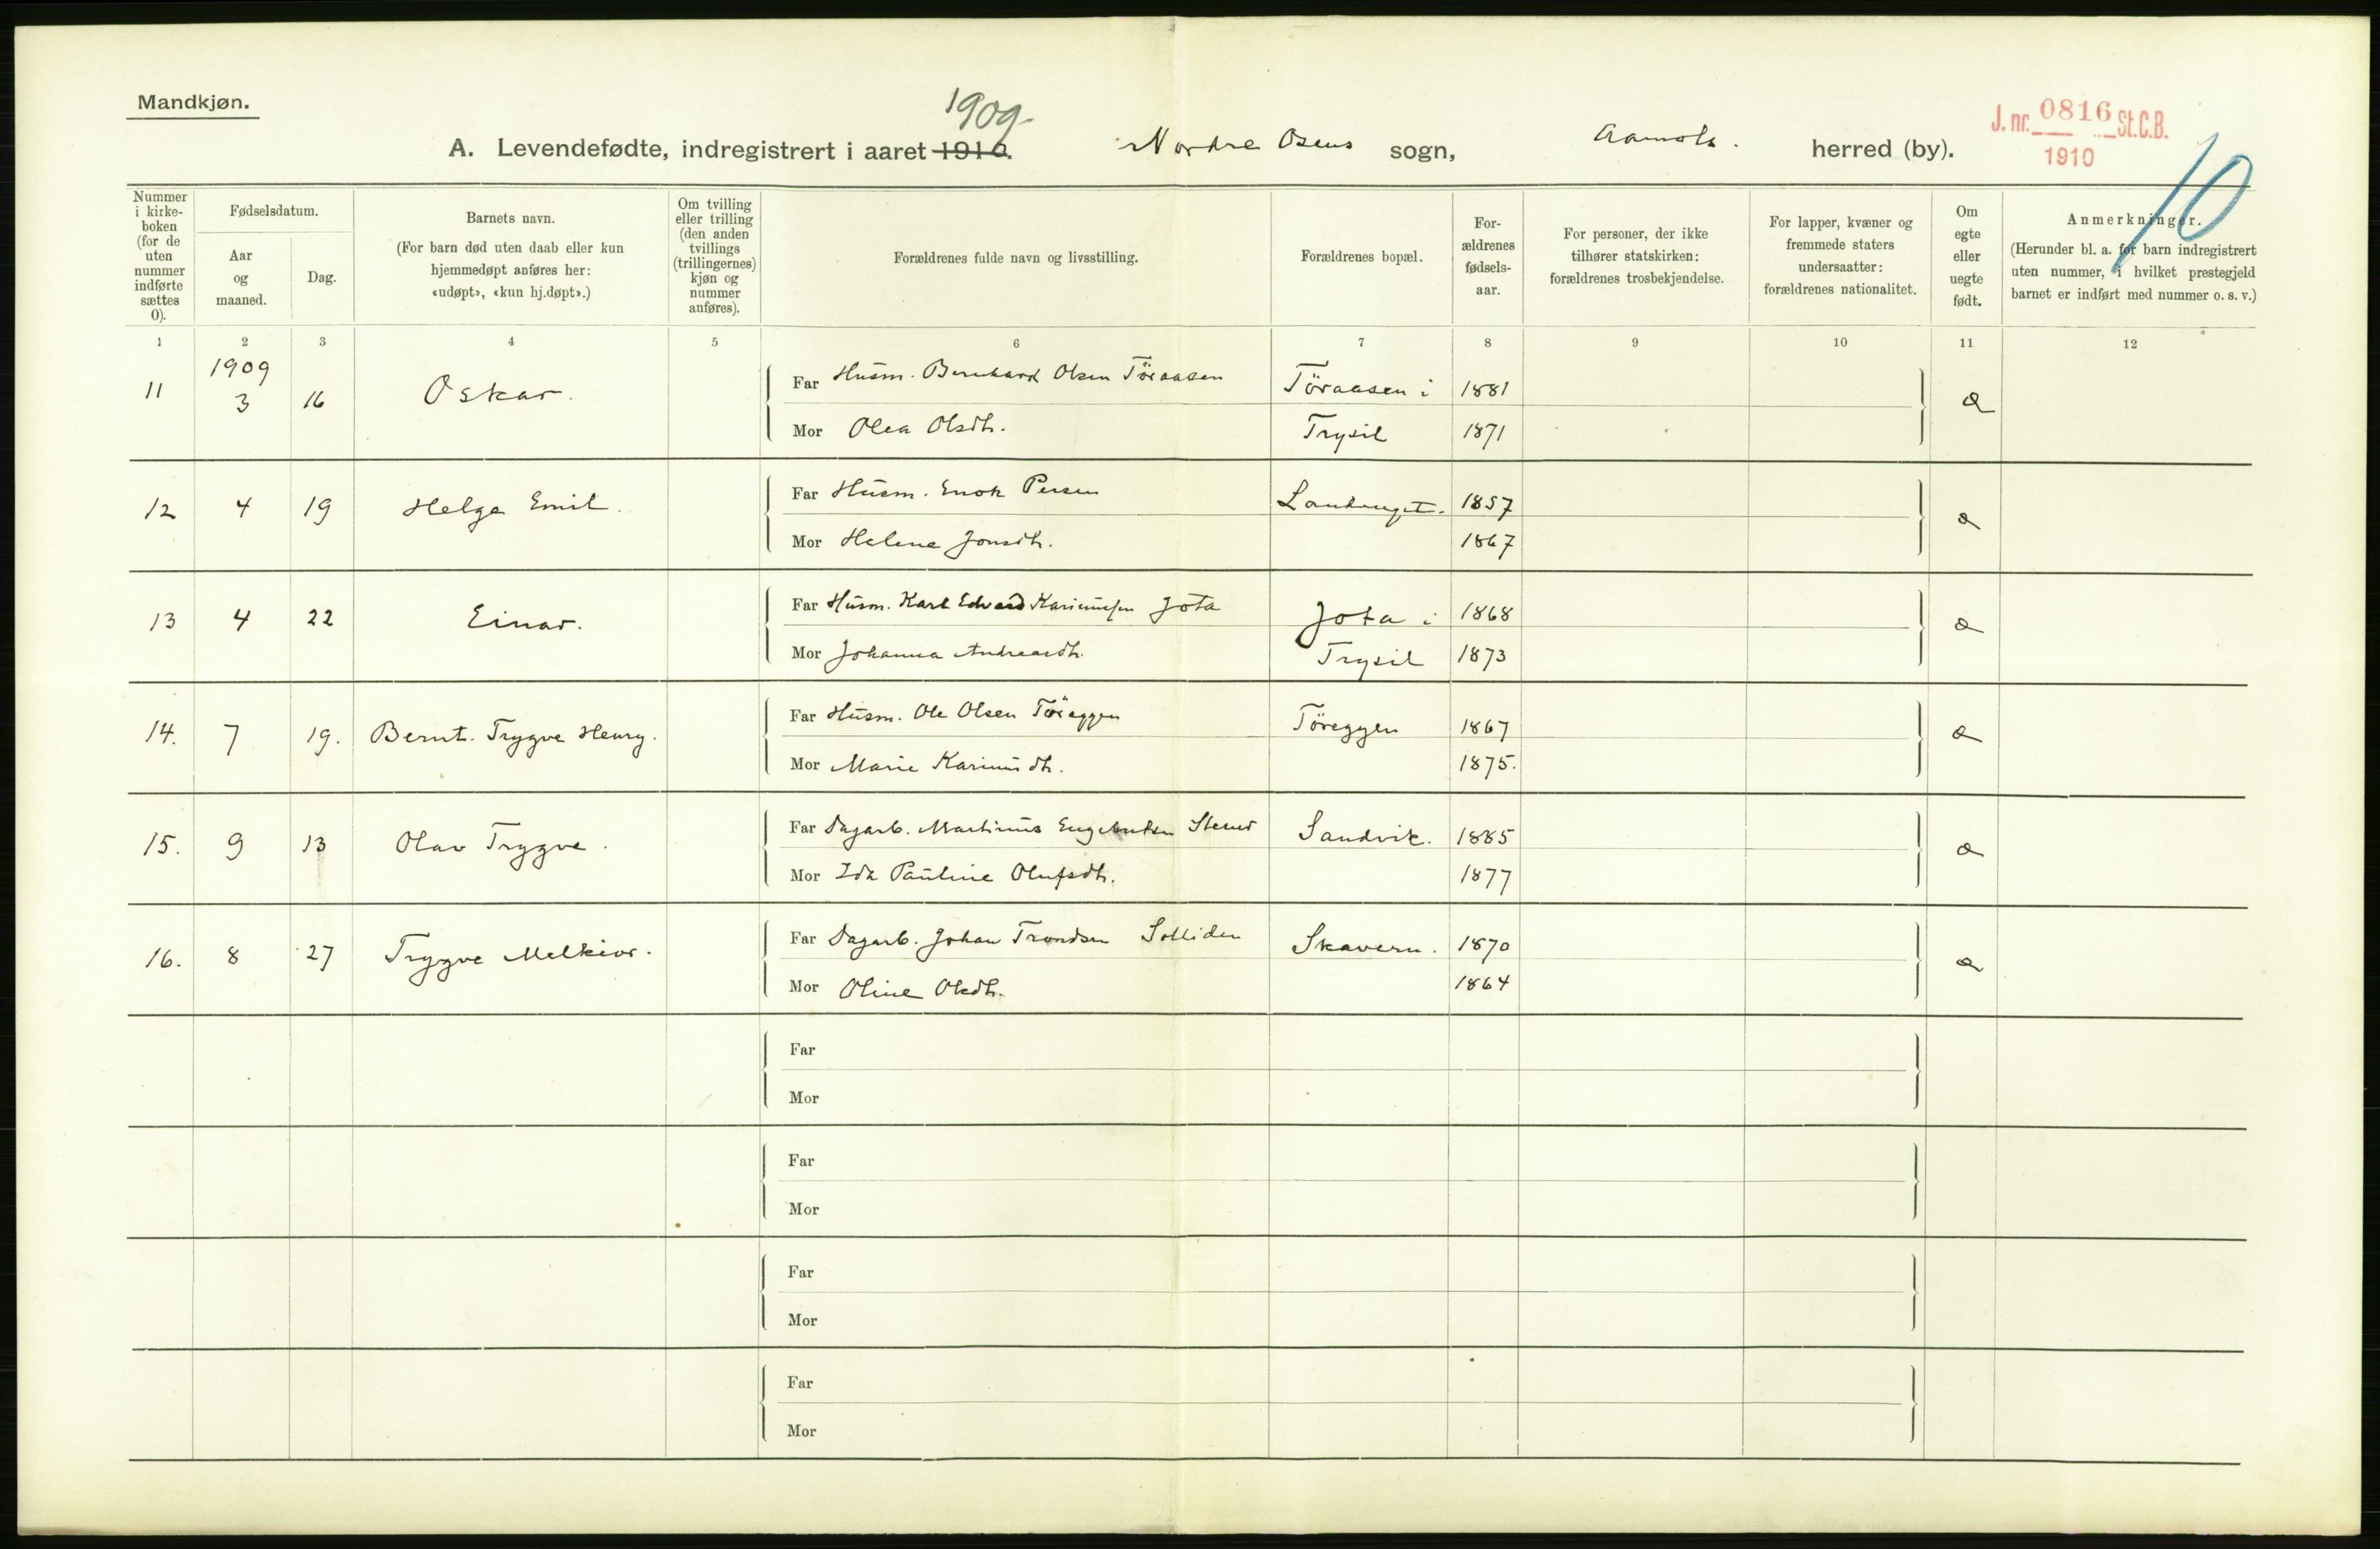 Mandkjøn.
1909
A. Levendefødte, indregistrert i aaret 1910. Nordre Osens sogn, Aamots. herred (by).
J. nr. 0816 St.C.B.
1910
10
Nummer i kirkeboken (for de uten nummer indførte sættes 0).
Fødselsdatum.
Aar og maaned.
Dag.
Barnets navn.
(For barn død uten daab eller kun hjemmedøpt anføres her: «udøpt», «kun hj.døpt».)
Om tvilling eller trilling (den anden tvillings (trillingernes) kjøn og nummer anføres).
Forældrenes fulde navn og livsstilling.
Forældrenes bopæl.
Forældrenes fødselsaar.
For personer, der ikke tilhører statskirken: forældrenes trosbekjendelse.
For lapper, kvæner og fremmede staters undersaatter: forældrenes nationalitet.
Om egte eller uegte født.
Anmerkninger.
(Herunder bl. a. for barn indregistrert uten nummer, i hvilket prestegjeld barnet er indført med nummer o. s. v.)
1 2 3 4 5 6 7 8 9 10 11 12
1909
11 3 16 Oskar. Far Husm. Bernhard Olsen Töraasen Töraasen i 1881 æ
Mor Olea Olsdtr. Trysil 1871
12 4 19 Helge Emil. Far Husm. Enok Persen 1857 æ
Mor Helene Jonsdtr. 1867
13 4 22 Einar. Far Husm. Karl Edvard Jota Jota i 1868 æ
Mor Johanna Andreasdtr. Trysil 1873
14. 7 19. Bernt Trygve Henry. Far Husm. Ole Olsen Töreggen Töreggen 1867 æ
Mor Marie 1875.
15. 9 13 Olav Trygve. Far Dagarb. Martinus Engebretsen Sandvik. 1885 æ
Mor Ida Pauline Olufsdtr. 1877
16. 8 27 Trygve Melkior. Far Dagarb. Johan Trondsen Solliden Skavern. 1870 æ
Mor Oline Olsdtr. 1864
Far
Mor
Far
Mor
Far
Mor
Far
Mor